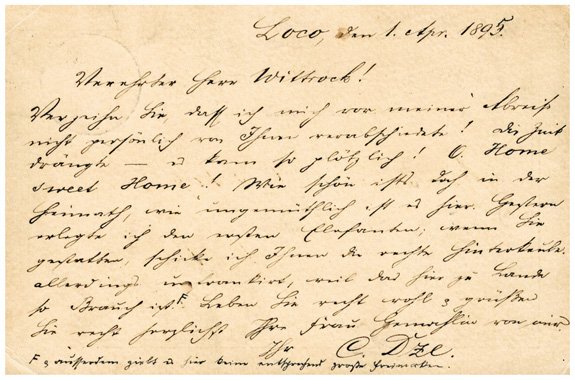 Loco, den 1. Apr. 1895.
Verehrter Herr Wittrock!
Verzeihn Sie, dass ich mich vor meiner Abreise
nicht persönlich von Ihnen verabschiedete! Die Zeit
drängte — es kam so plötzlich! O. Home
sweet Home! Wie schön ists doch in der
Heimath, wie ungemüthlich ist es hier. Gestern
erlegte ich den ersten Elefanten; wenn Sie
gestatten, schicke ich Ihnen die rechte Hinterkeule.
allerdings unfrankirt, weil das hier zu Lande
so Brauch ist. Leben Sie recht wohl & grüßen
Sie recht herzlichst Ihre Frau Gemahlin von mir
Ihr C. Dze.
ausserdem giebt es hier keine entsprechend große Freimarken.